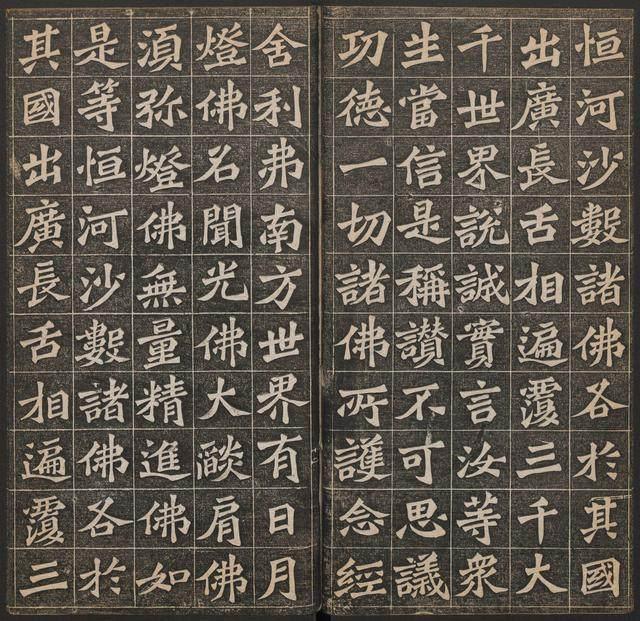 恒河沙數諸佛各於其國
出廣長舌相遍覆三千大
千世界説誠實言汝等衆
生當信是稱讃不可思議
功德一切諸佛所護念經
舍利弗南方世界有日月
燈佛名聞光佛大燄肩佛
湏弥燈佛無量精進佛如
是等恒河沙數諸佛各於
其國出廣長舌相遍覆三